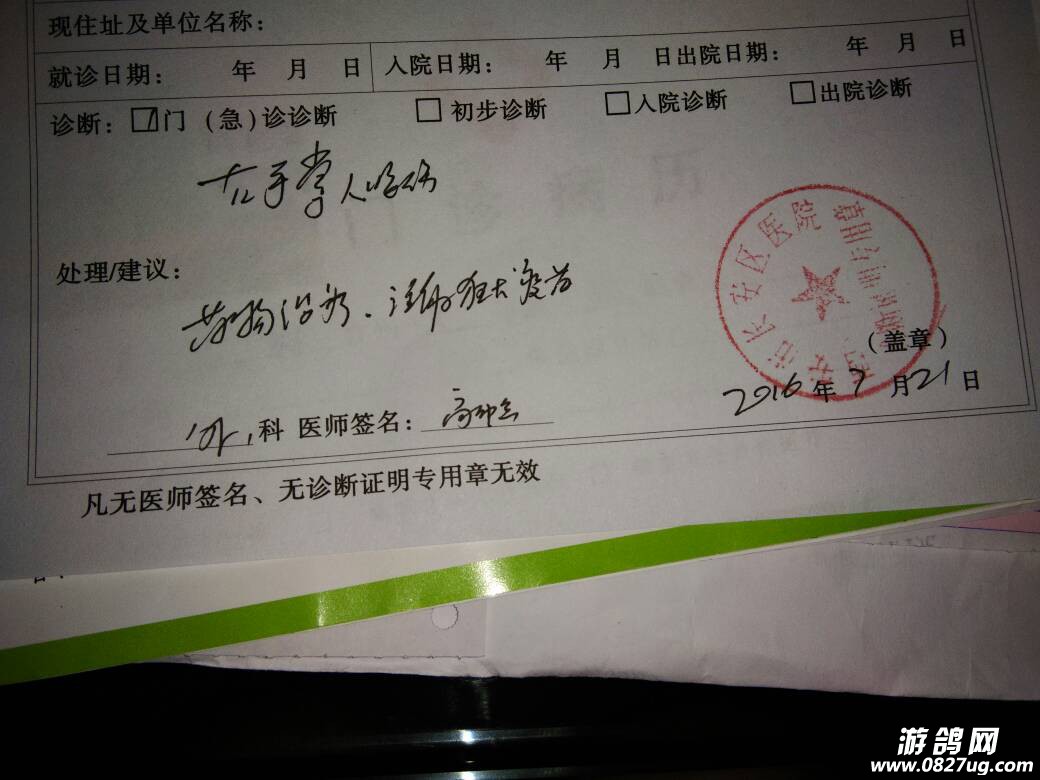 现住址及单位名称：
就诊日期： 年 月 日 入院日期： 年 月 日 出院日期： 年 月 日
诊断： ☑门（急）诊诊断 □ 初步诊断 □入院诊断 □出院诊断
左手掌人咬伤
处理/建议：
药物治疗、注射狂犬疫苗
长安区医院
（盖章）
2016年7月21日
外科 医师签名：
凡无医师签名、无诊断证明专用章无效
游鸽网
www.0827ug.com